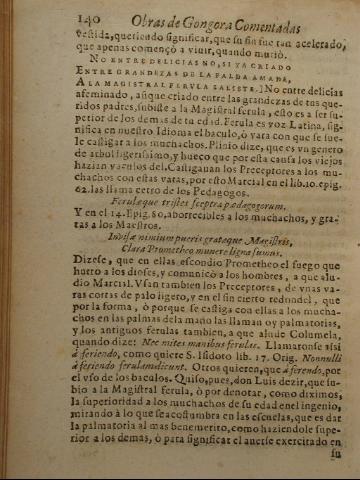 140 Obras de Gongora Comentadas
vestida, queriendo significar, que su fin fue tan acelerado,
que apenas començò a viuir, quando muriò.
NO ENTRE DELICIAS NO, SI YA CRIADO
ENTRE GRANDEZAS DE LA FALDA AMADA,
A LA MAGISTRAL FERULA SALISTE.] No entre delicias
afeminado, aũque criado entre las grandezas de tus que-
ridos padres, subiste a la Magistral ferula, esto es a ser su-
perior de los demas de tu edad. Ferula es voz Latina, sig-
nifica en nuestro Idioma el baculo, ò vara con que se sue-
le castigar a los muchachos. Plinio dize, que es vn genero
de arbol ligerissimo, y hueco que por esta causa los viejos
hazian vaculos del. Castigauan los Preceptores a los mu-
chachos con estas varas, por esto Marcial en el lib. 10. epig.
62. las llama cetro de los Pedagogos.
Ferulæque tristes sceptra pædagogorum.
Y en el 14. Epig. 80, aborrecibles a los muchachos, y gra-
tas a los Maestros.
Inuisæ nimium pueris gratæque Magistris,
Clara Prometheo munere ligna sumus.
Dizese, que en ellas escondio Prometheo el fuego que
hurtò a los dioses, y comunicò a los hombres, a que alu-
dio Marcial. Vsan tambien los Preceptores, de vnas va-
ras cortas de palo ligero, y en el fin cierto redondel, que
por la forma, ò porque se castiga con ellas a los mucha-
chos en las palmas de la mano las llaman oy palmatorias,
y los antiguos ferulas tambien, a que alude Columela,
quando dize: Nec mites manibus ferulas. Llamaronse assi
à feriendo, como quiere S. Isidoro lib. 17. Orig. Nonnulli
à feriendo ferulam dicunt. Otros quieren, que à ferendo, por
el vso de los baculos. Quiso, pues, don Luis dezir, que su-
bio a la Magistral ferula, ò por denotar, como diximos,
la superioridad a los muchachos de su edad en el ingenio,
mirando à lo que se acostumbra en las escuelas, que es dar
la palmatoria al mas benemerito, como haziendole supe-
rior a los demas, ò para significar el auerse exercitado en
su